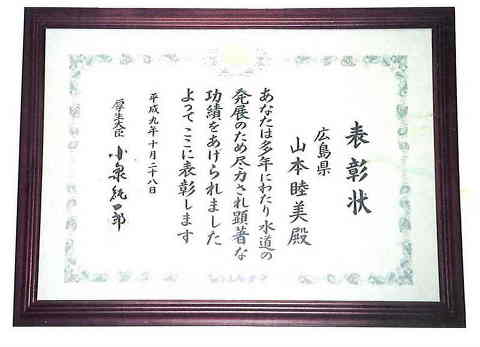 表彰状
広島県
山本睦美殿
あなたは多年にわたり水道の
発展のため尽力され顕著な
功績をあげられました
よってここに表彰します
平成九年十月二十八日
厚生大臣 小泉純一郎